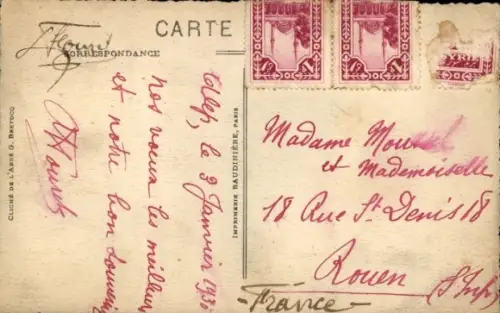 CARTE
CORRESPONDANCE
Alep, le 3 Janvier 193
nos vœux les meilleurs
et notre bon souvenir
CLICHÉ DE L'ABBÉ G. BRETOCQ
IMPRIMERIE BAUDINIÈRE, PARIS
Madame
et Mademoiselle
18 Rue St Denis 18
Rouen
(S. Inf)
France